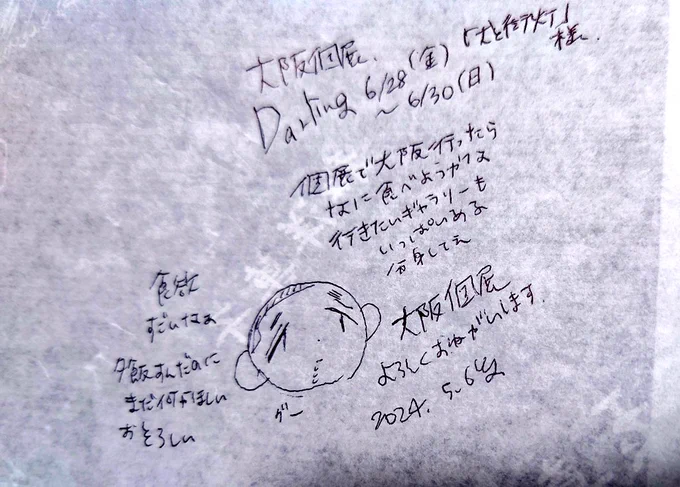 大阪個展
Darling 6/28(金)「犬と街灯」様
～6/30(日)
個展で大阪行ったら
なに食べようかなぁ
行きたいギャラリーも
いっぱいある
分身してぇ
大阪個展
よろしくおねがいします。
2024. 5. 6
食欲
すごいなぁ
夕飯すんだのに
まだ何かほしい
おそろしい
グー